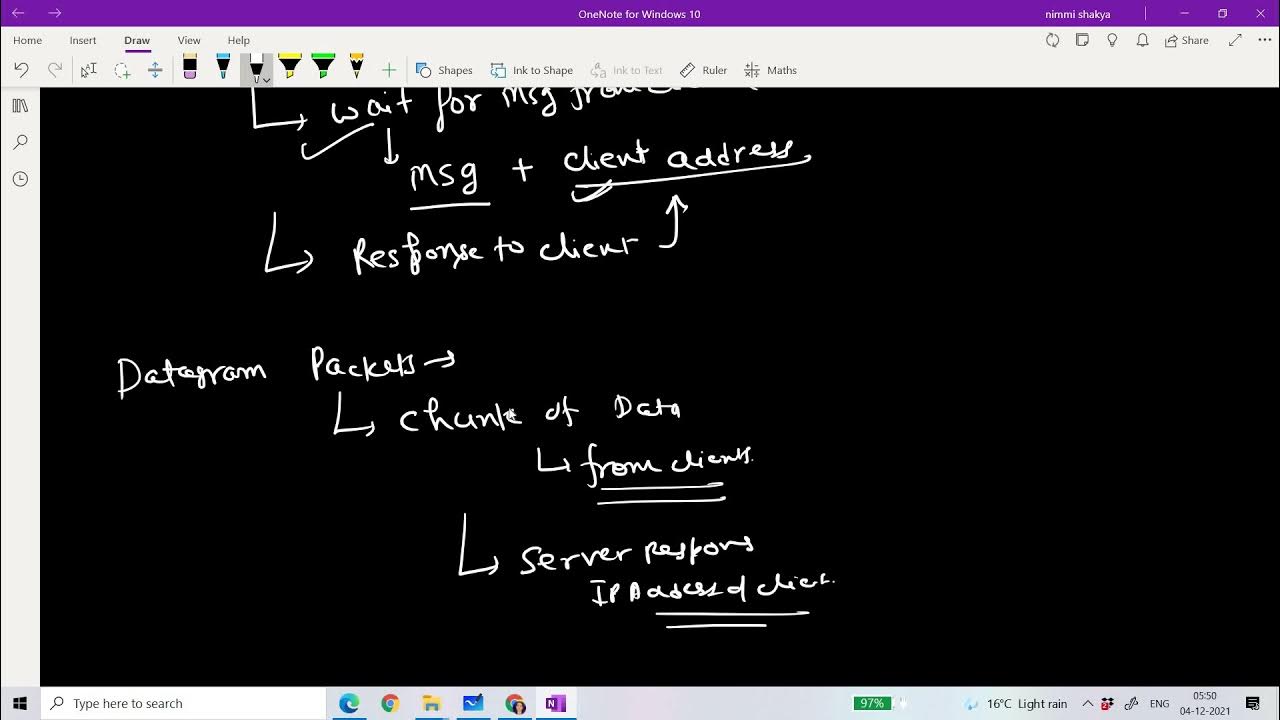 OneNote for Windows 10
nimmi shakya
Home Insert Draw View Help
Share
Shapes Ink to Shape Ink to Text Ruler Maths
wait for msg from
msg + client address
Response to client
Datagram Packets
chunk of Data
from clients.
Server respons
IP Address of client.
Type here to search
97%
16°C Light rain
ENG
05:50
04-12-2021